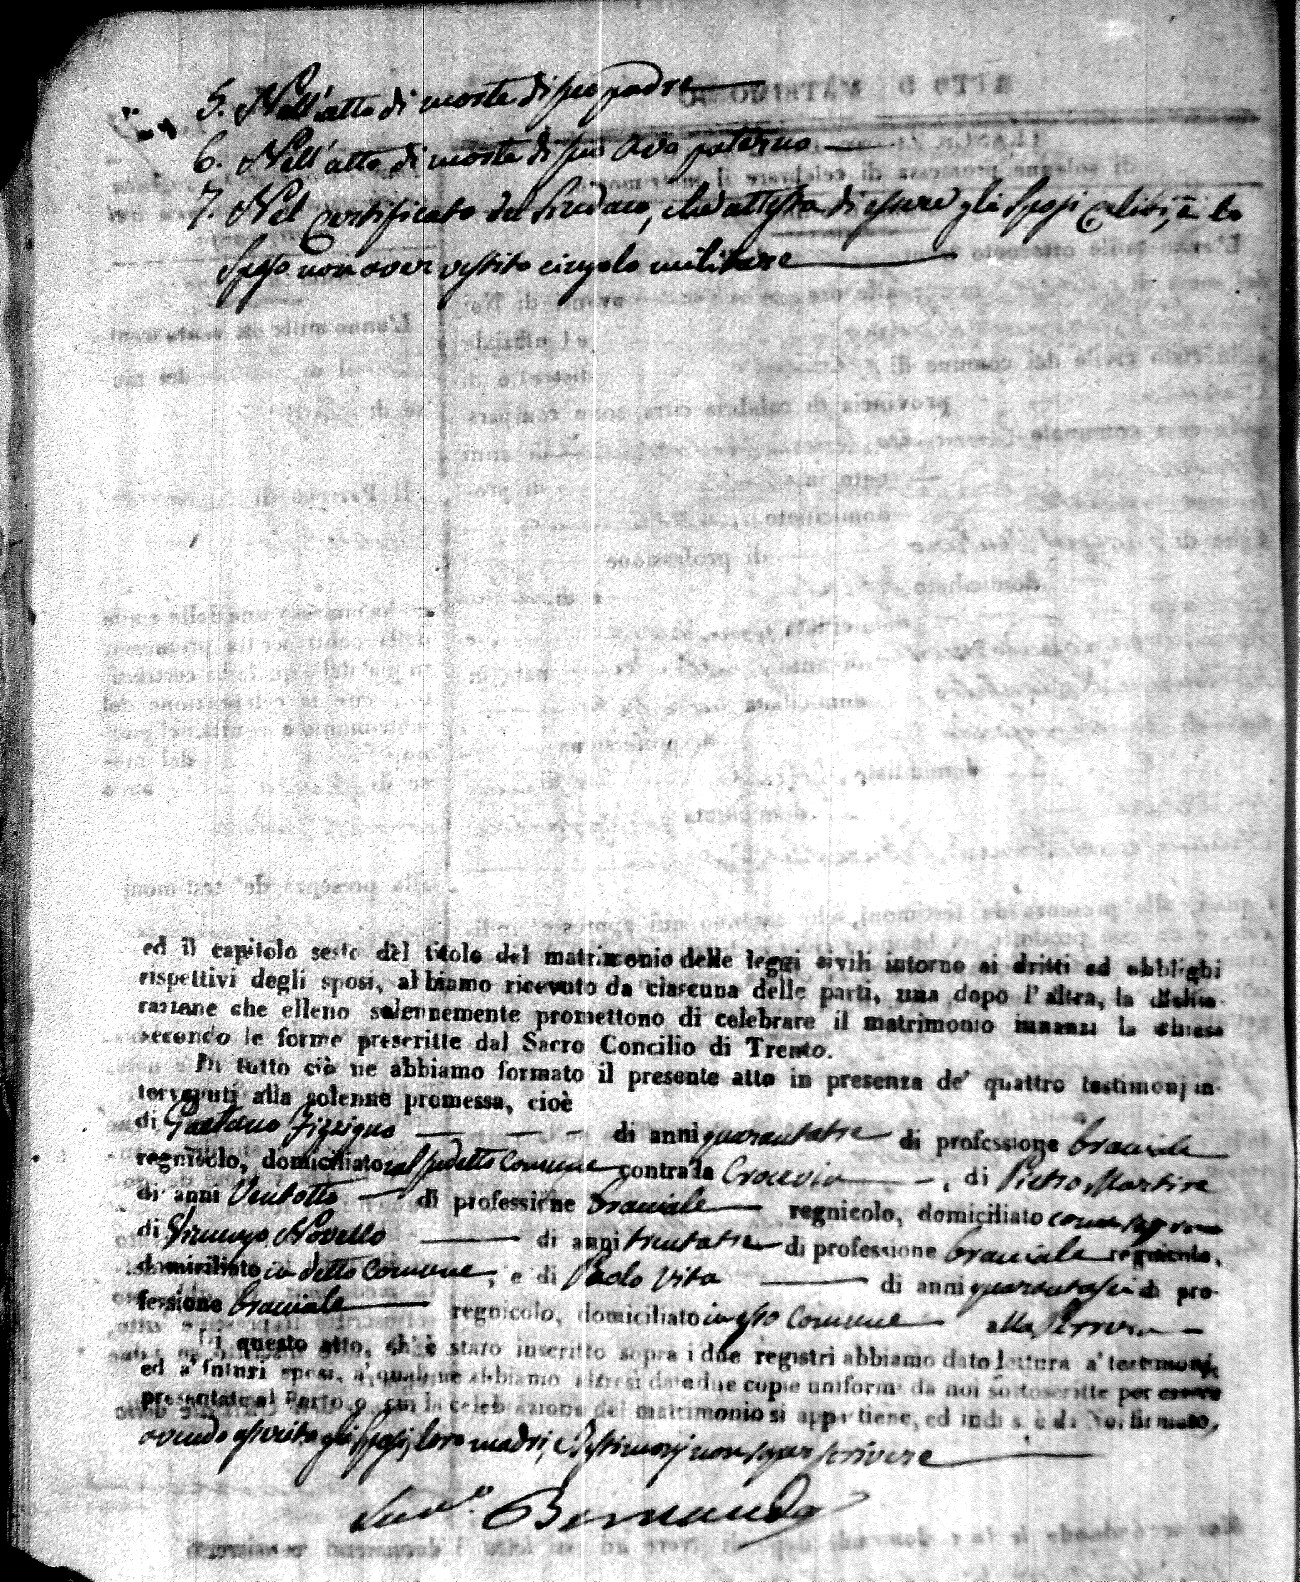 5. Nell'atto di morte di suo padre
6. Nell'atto di morte di suo Avo paterno
7. Nel certificato del Sindaco, che attesta di essere gli Sposi celibi, e lo
Sposo non aver vestito cingolo militare
ed il capitolo sesto del titolo del matrimonio delle leggi civili intorno ai dritti ed obblighi
rispettivi degli sposi, abbiamo ricevuto da ciascuna delle parti, una dopo l'altra, la dichia-
razione che elleno solennemente promettono di celebrare il matrimonio innanzi la chiesa
secondo le forme prescritte dal Sacro Concilio di Trento.
Di tutto ciò ne abbiamo formato il presente atto in presenza de' quattro testimonj in-
tervenuti alla solenne promessa, cioè
di Gaetano di anni quarantatre di professione bracciale
regnicolo, domiciliato nel sudetto Comune contrada Crocevia, di Pietro Martire
di anni Ventotto di professione bracciale regnicolo, domiciliato come sopra
di Vincenzo Novello di anni trentatre di professione bracciale regnicolo,
domiciliato in detto Comune, e di Paolo Vita di anni quarantasei di pro-
fessione bracciale regnicolo, domiciliato in esso Comune alla
Di questo atto, ch'è stato inscritto sopra i due registri abbiamo dato lettura a' testimonj
ed a' futuri sposi, a' quali ne abbiamo altresì date due copie uniformi da noi sottoscritte per essere
presentate al Parroco, cui la celebrazione del matrimonio si appartiene, ed indi si è da Noi firmato,
avendo asserito gli Sposi, loro madri, e Testimonj non saper scrivere
Bernaudo